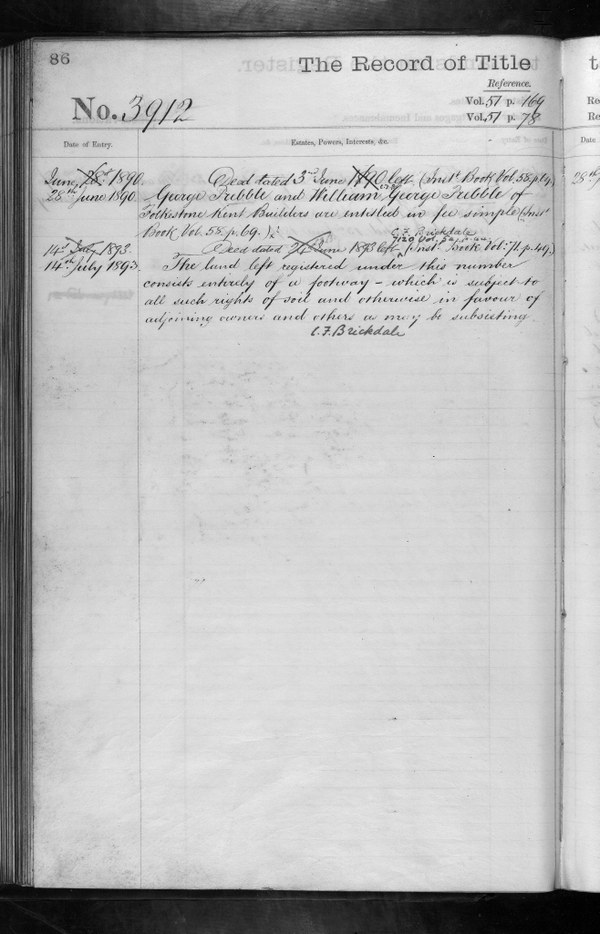 86
The Record of Title
Reference.
No. 3912
Vol. 51 p. 169
Vol. 51 p. 78
Date of Entry.
Estates, Powers, Interests, &c.
June 28th 1890. Deed dated 3rd June 1890 left (Inst. Book Vol. 58. p. 69.)
28th June 1890. George Tribble and William George Tribble of
Folkestone Kent Builders are entitled in fee simple (Inst.
Book Vol. 58. p. 69.)
C. F. Brickdale
14th July 1893. Deed dated June 1893 left (Inst. Book Vol: 71. p. 49.)
14th July 1893. The land left registered under this number
consists entirely of a footway - which is subject to
all such rights of soil and otherwise in favour of
adjoining owners and others as may be subsisting.
C. F. Brickdale